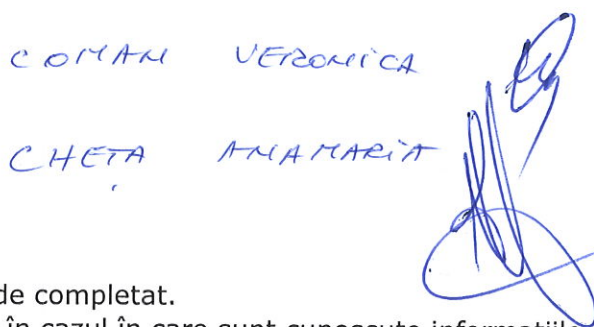 COMAN VERONICA
CHEȚA ANAMARIA
de completat.
în cazul în care sunt cunoscute informațiile